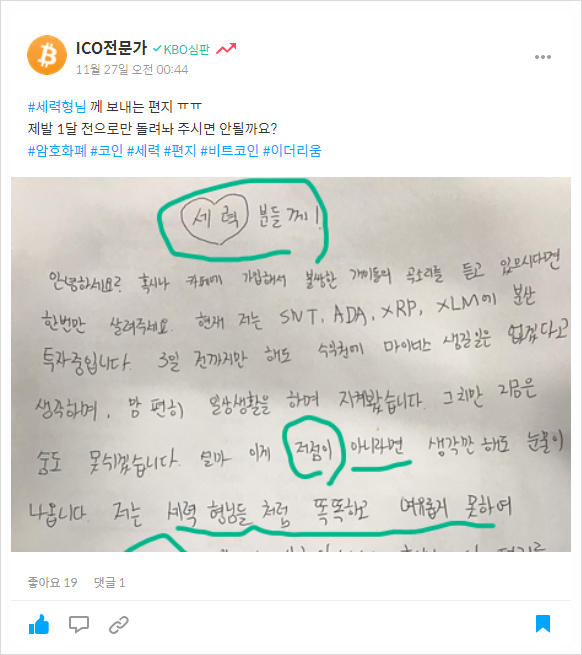 ICO전문가 KBO심판
11월 27일 오전 00:44
#세력형님 께 보내는 편지 ㅠㅠ
제발 1달 전으로만 돌려놔 주시면 안될까요?
#암호화폐 #코인 #세력 #편지 #비트코인 #이더리움
세력 분들께!
안녕하세요? 혹시나 카페에 가입해서 불쌍한 개미들의 곡소리를 듣고 있으시다면
한번만 살려주세요. 현재 저는 SNT, ADA, XRP, XLM에 분산
투자중입니다. 3일 전까지만 해도 수익권에 마이너스 생길일은 없겠다고
생각하며, 맘 편히 일상생활을 하며 지켜봤습니다. 그치만 지금은
숨도 못쉬겠습니다. 설마 이게 저점이 아니라면 생각만 해도 눈물이
나옵니다. 저는 세력 형님들 처럼 똑똑하고 여유롭게 못하여
좋아요 19 댓글 1